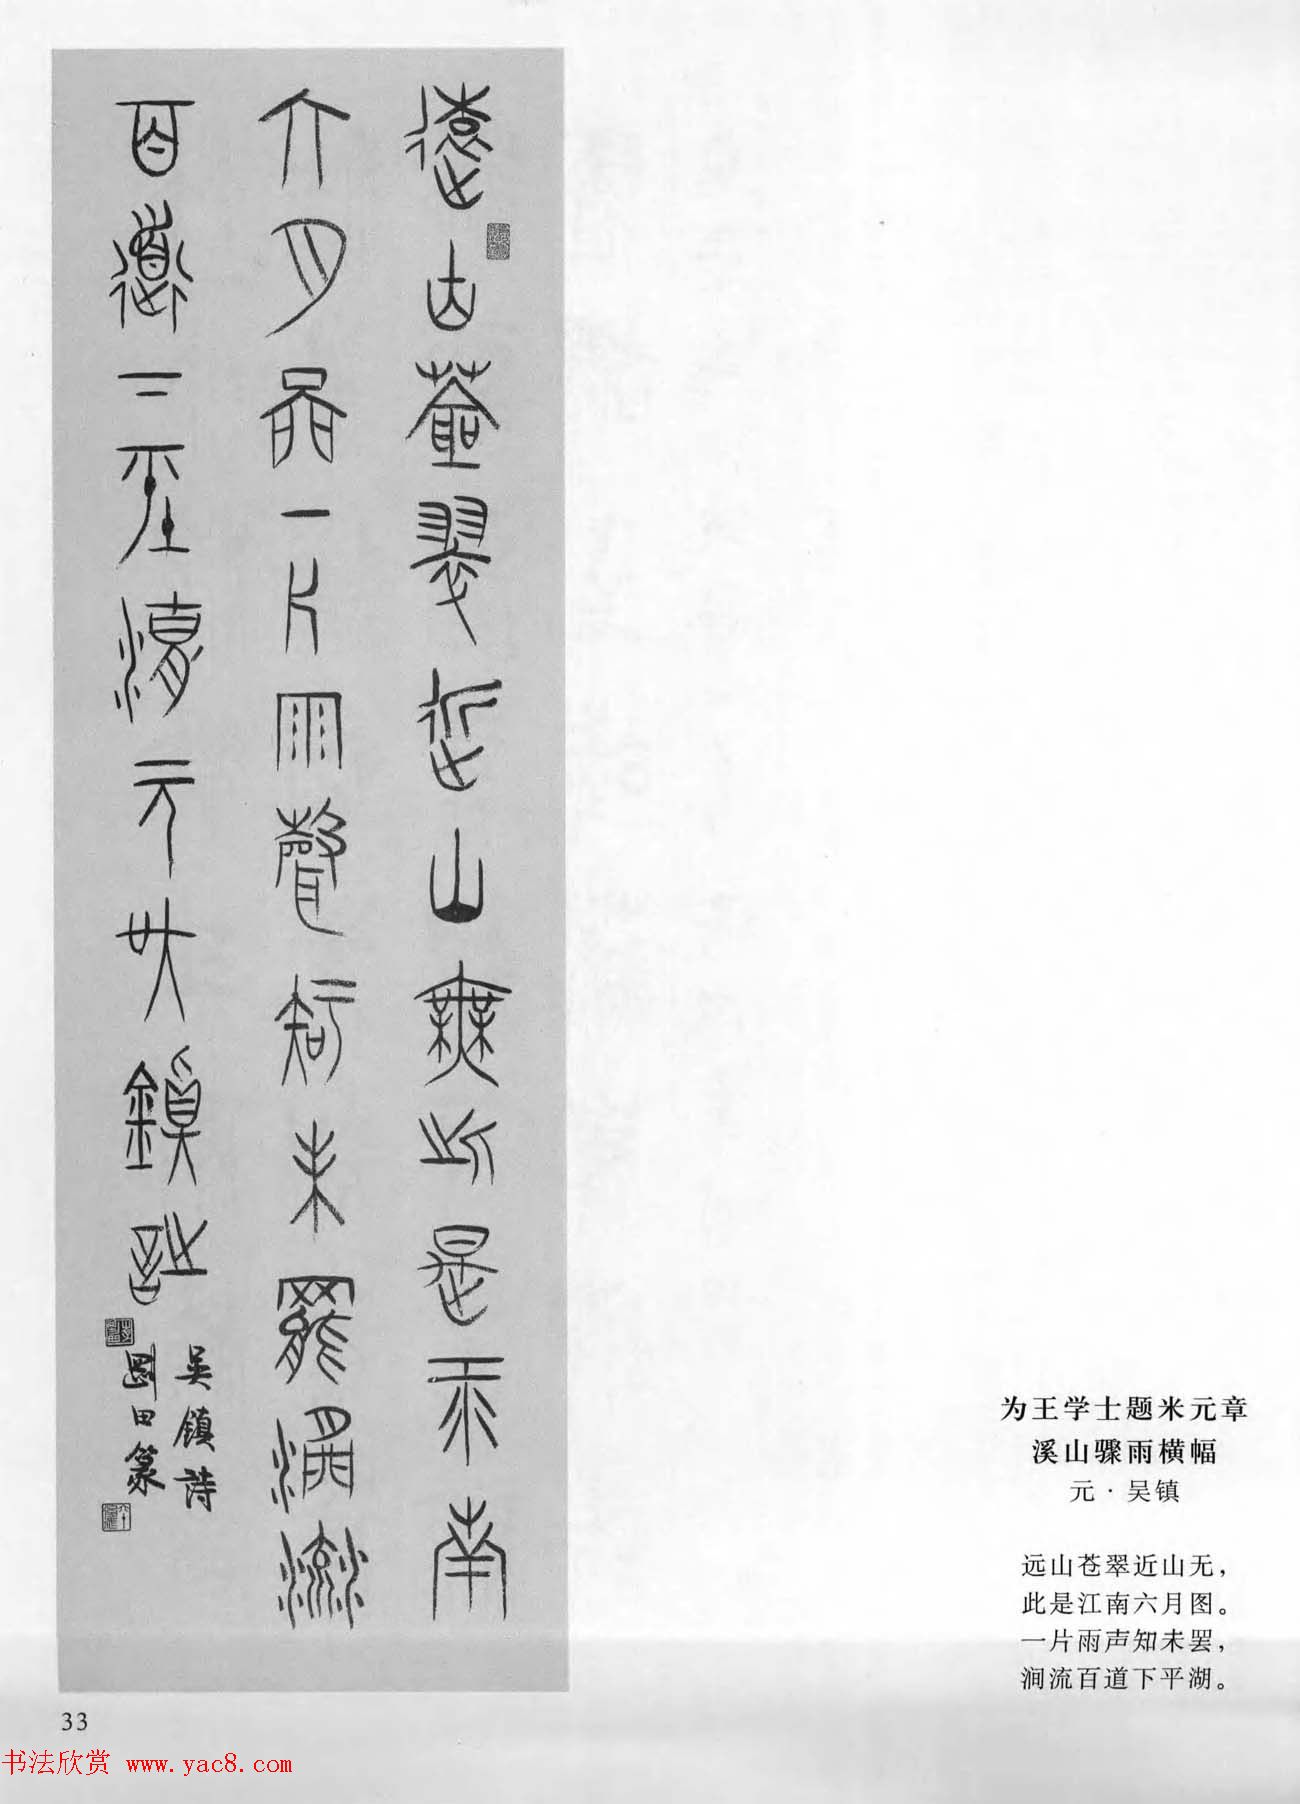 遠山蒼翠近山無此是南
六月圖一片雨聲知未罷澗流
百道下平湖元吳鎮詩
吳鎮詩
剛田篆
为王学士题米元章
溪山骤雨横幅
元·吴镇
远山苍翠近山无，
此是江南六月图。
一片雨声知未罢，
涧流百道下平湖。
33
书法欣赏 www.yac8.com